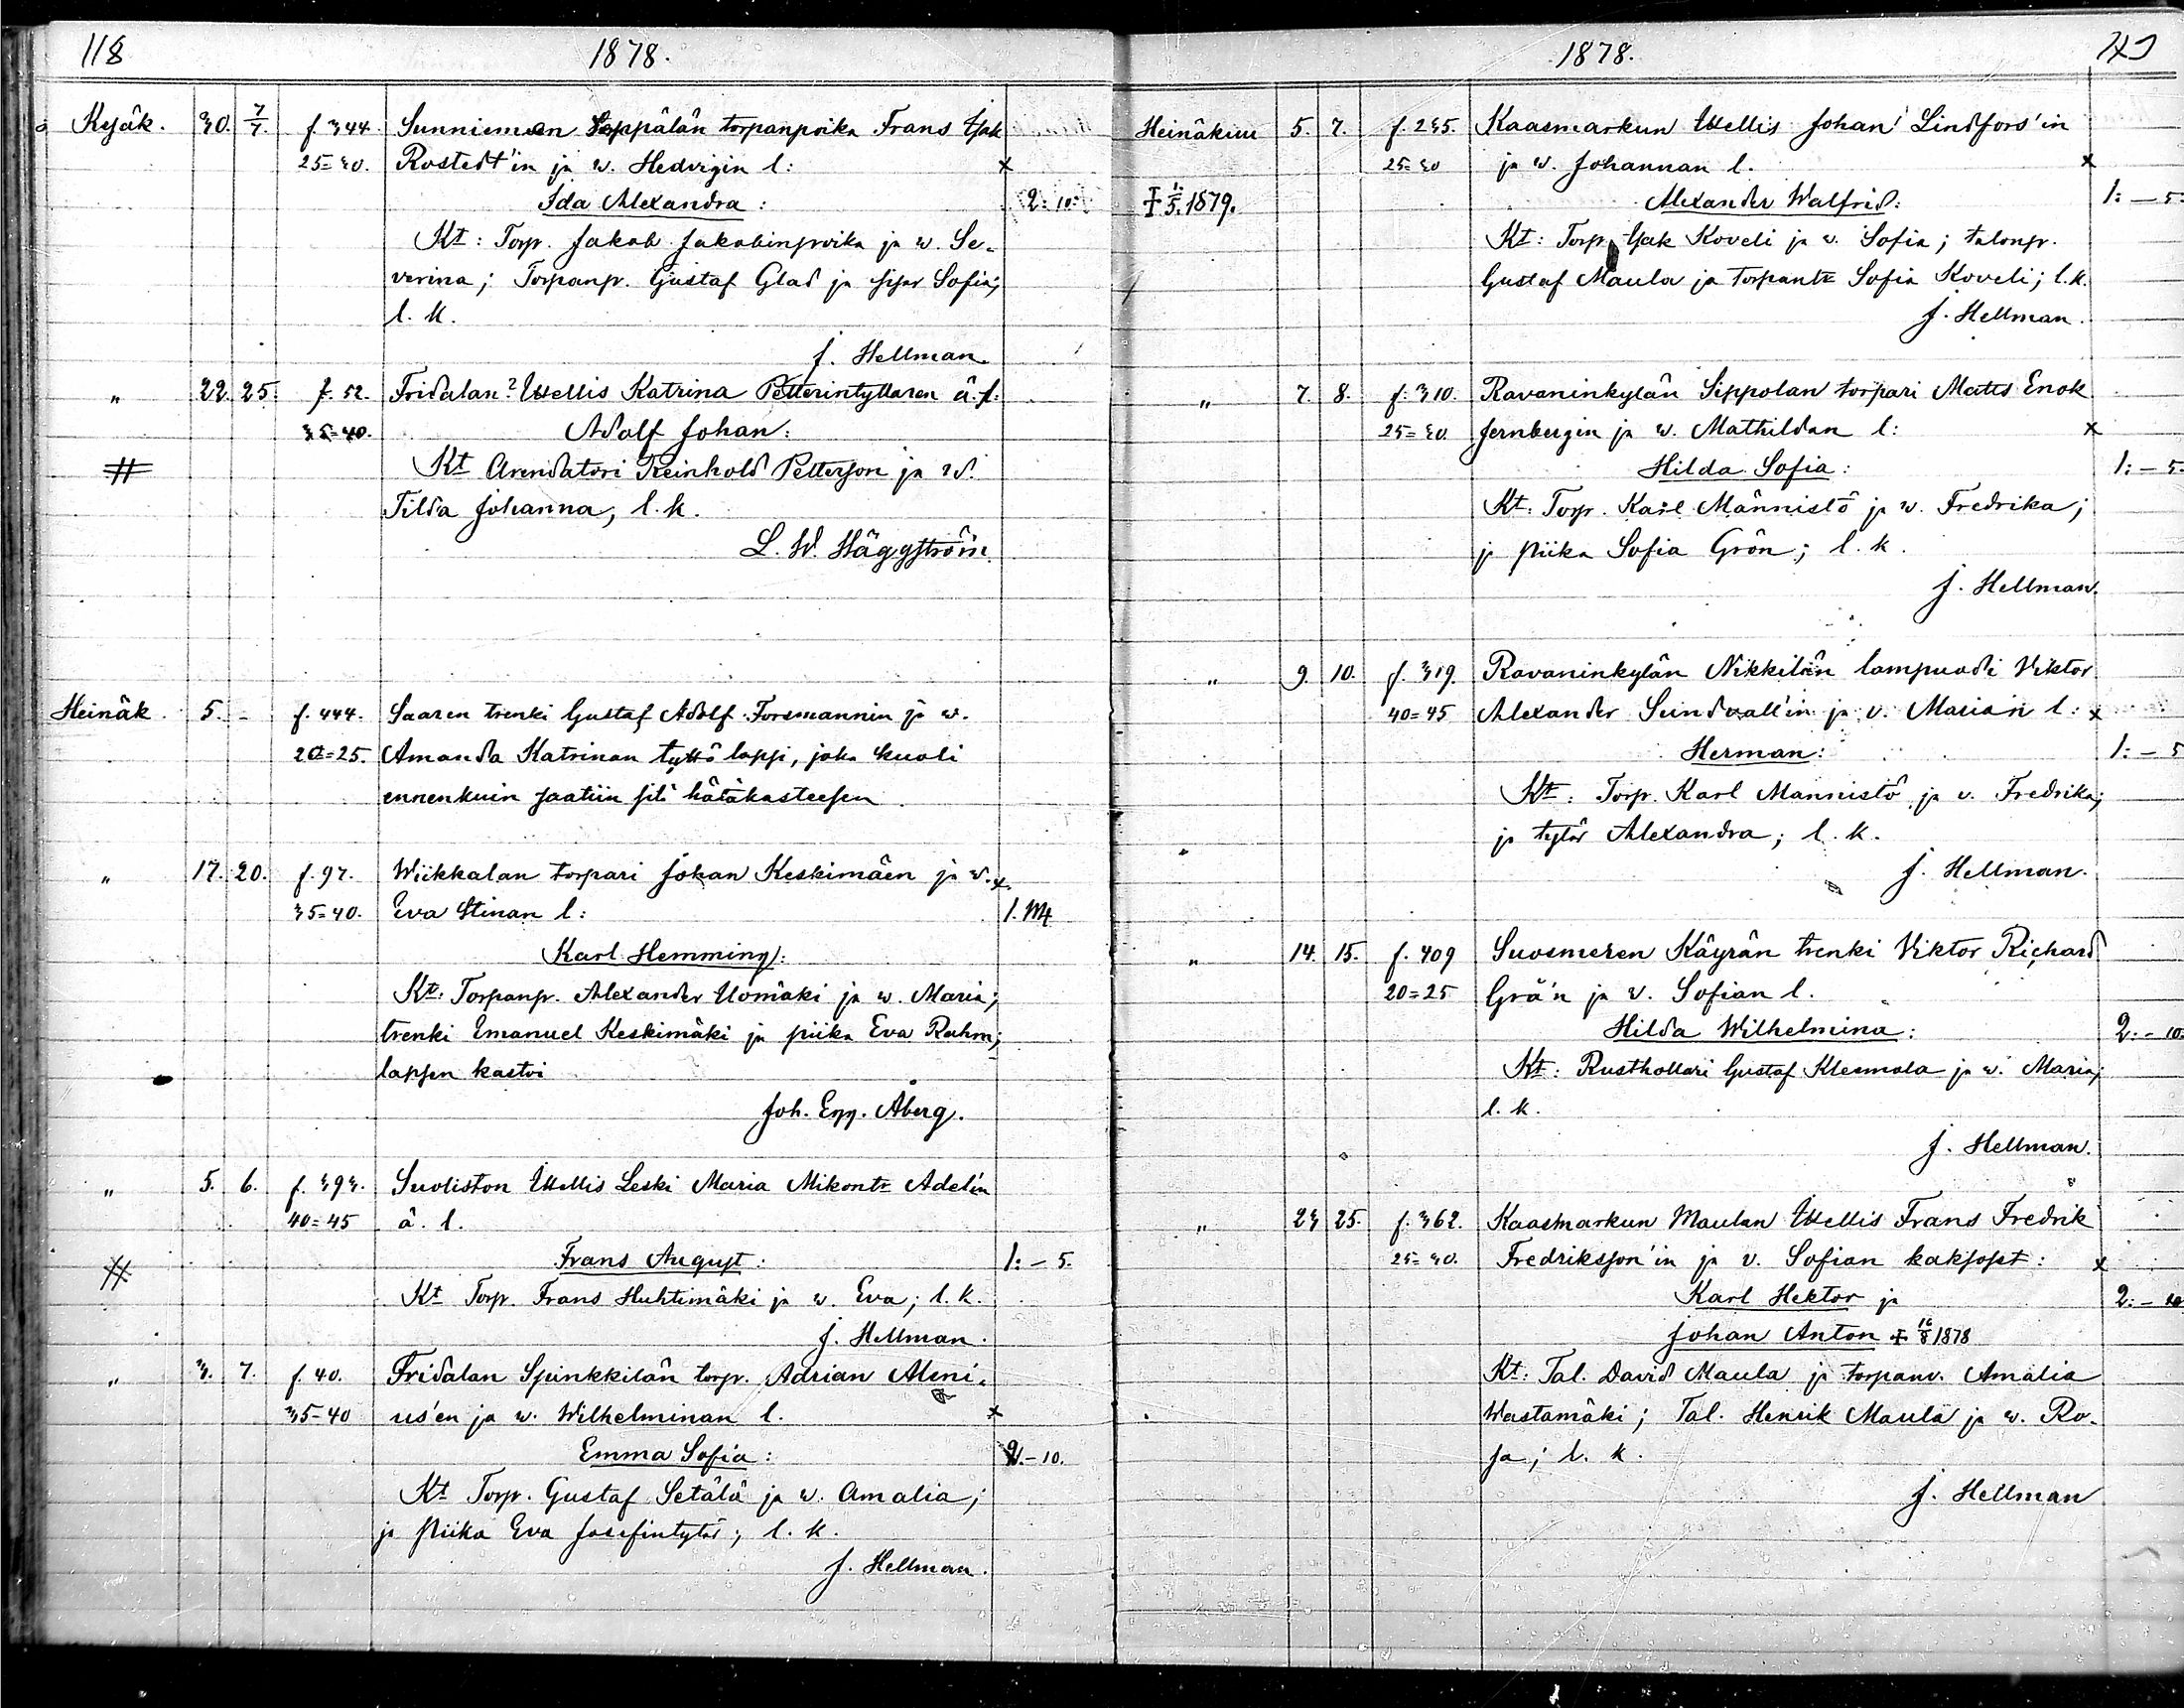 118 1878.
Kesäk. 30. 7/7. f. 344. Sunniemen Seppälän torpanpoika Frans Isak
25=30. Rostedt'in ja w. Hedvigin l: x
Ida Alexandra: 2: 10:
Kt: Torp. Jakob Jakobinpoika ja w. Se-
verina; Torpanp. Gustaf Glad ja sisar Sofia;
l. k.
J. Hellman.
" 22. 25. f. 52. Fridalan? Itellis Katrina Petterintyttaren ä. l.
35=40. Adolf Johan:
# Kt Arendatori Reinhold Petterson ja W.
Tilda Johanna, l. k.
L. W. Häggström.
Heinäk. 5. - f. 444. Saaren trenki Gustaf Adolf Forsmannin ja w.
20=25. Amanda Katrinan tyttö lapsi, joka kuoli
ennenkuin saatiin sitä hätäkasteesen
" 17. 20. f. 97. Wiikkalan torpari Johan Keskimäen ja w. x.
35=40. Eva Stinan l: 1. Mk
Karl Hemming:
Kt: Torpanp. Alexander Uomäki ja w. Maria;
trenki Emanuel Keskimäki ja piika Eva Rahm;
lapsen kastoi
Joh. Åberg.
" 5. 6. f. 393. Suoliston Itellis Leski Maria Mikontr Adelin
40=45 ä. l.
# Frans August: 1: - 5.
Kt Torp. Frans Huhtimäki ja w. Eva; l. k.
J. Hellman.
" 3. 7. f. 40. Fridalan Spinkkilän torp. Adrian Aleni-
35-40 us'en ja w. Wilhelminan l. x
Emma Sofia: 2. - 10.
Kt Torp. Gustaf Setälä ja w. Amalia;
ja piika Eva Josefintytär; l. k.
J. Hellman.
1878.
Heinäkuu 5. 7. f. 235. Kaasmarkun Itellis Johan Lindfors'in
25=30 ja w. Johannan l. x
1879. Alexander Walfrid: 1: - 5:
Kt: Torp. Isak Koveli ja w. Sofia; talonp.
Gustaf Maula ja torpantr Sofia Koveli; l. k.
J. Hellman.
" 7. 8. f. 310. Ravaninkylän Sippolan torpari Mats Enok
25=30 Jernbergin ja w. Mathildan l: x
Hilda Sofia: 1: - 5.
Kt: Torp. Karl Männistö ja w. Fredrika;
ja piika Sofia Grön; l. k.
J. Hellman.
" 9. 10. f. 319. Ravaninkylän Nikkilän lampuodi Viktor
40=45 Alexander Sundvall'in ja v. Marian l: x
Herman: 1: - 5
Kt: Torp. Karl Mannistö ja v. Fredrika;
ja tytär Alexandra; l. k.
J. Hellman.
" 14. 15. f. 409 Suosmeren Käyrän trenki Viktor Richard
20=25 Grä'n ja v. Sofian l.
Hilda Wilhelmina: 2: - 10.
Kt: Rusthollari Gustaf Klemola ja w. Maria;
l. k.
J. Hellman.
" 23 25. f. 362. Kaasmarkun Maulan Itellis Frans Fredrik
25=30. Fredriksson'in ja v. Sofian kaksoset: x
Karl Hektor ja 2: - 10
Johan Anton ‡ 16/8 1878
Kt: Tal. David Maula ja torpanv. Amalia
Wastamäki; Tal. Henrik Maula ja w. Ro-
sa; l. k.
J. Hellman